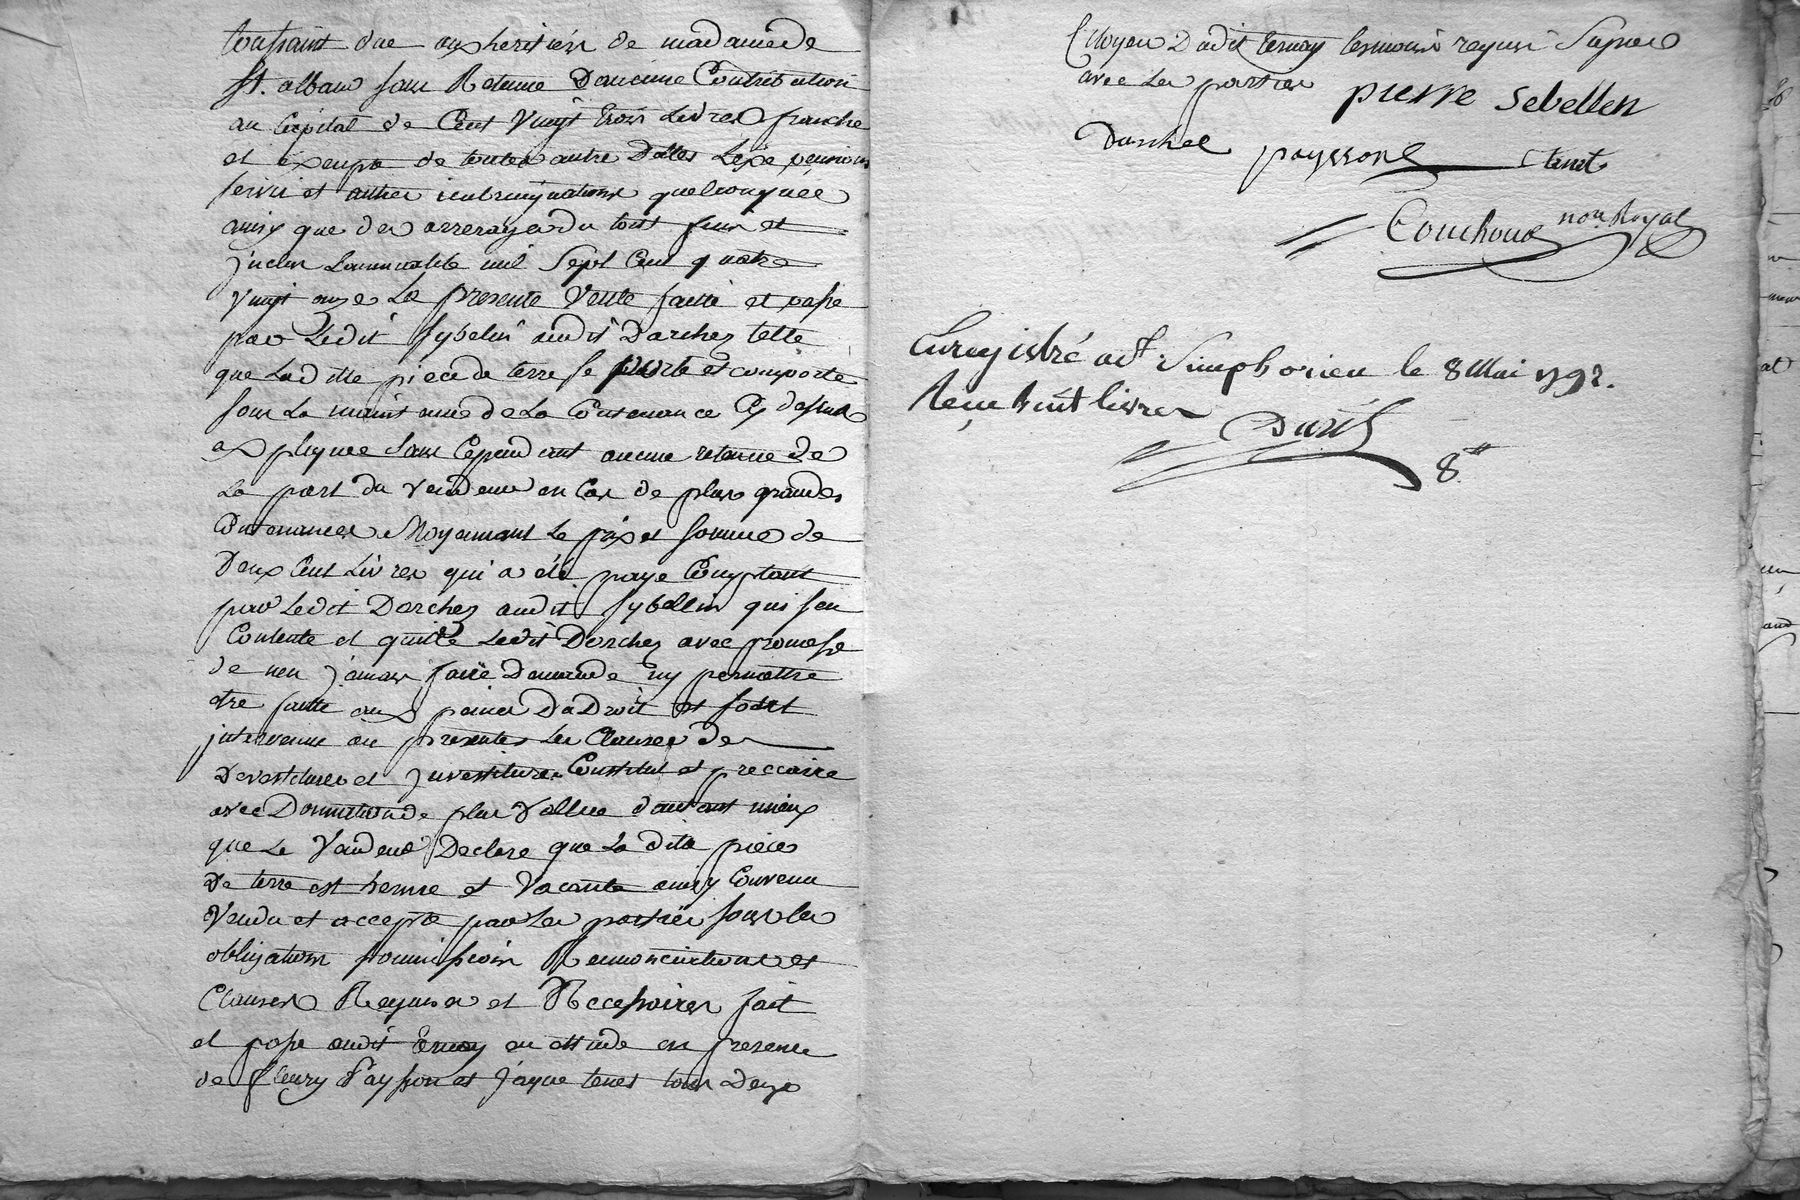 toussaint due aux heritiers de madame de
St. alban sans Retenue Daucune Contribution
au Capital de Cent Vingt trois Livres franche
et exempte de toutes autre Dettes Legs pensions
servis et autres quelconques
ainsy que des arrerages du tout ſuivi et
jusqu'en mil Sept Cent quatre
Vingt onze La presente Vente faitte et passé
par Ledit Sybelin audit Darches telle
que Laditte piece de terre se porte et comporte
sous La de La Contenance Cy dessus
expliquée sans Cependant aucune retenue de
La part du Vendeur en Cas de plus grandes
Contenances Moyennant Le prix et somme de
Deux Cent Livres qui a été payé Comptant
par Ledit Dorches audit Sybellin qui sen
Contente et quitte Ledit Dorches avec promesse
de nen jamais faire Demande ny permettre
etre faitte aux peines De Droit et sont
intervenue au presentes Les Clauses de
Devestiture et Juvestiture Constitut et preccaire
avec Donnation de plus Vallue dautant mieux
que Le Vandeur Declare que La dite piece
De terre est herme et Vacante ainsy Convenu
Vendu et accepté par Les parties sous les
obligations soumissions Rennonciations et
Clauses Requises et Neccessaires fait
et passé audit Ternay en Ettude en presence
de fleury Paysson et Jaque tenet tous Deux
Citoyens Dudit Ternay temoins requis Signés
avec Les parties pierre Sebellin
Darches payssone tenet
Couchoud nore Royal
Enregistré a St Simphorien le 8 Mai 1792.
Reçu huit livres
8.tt